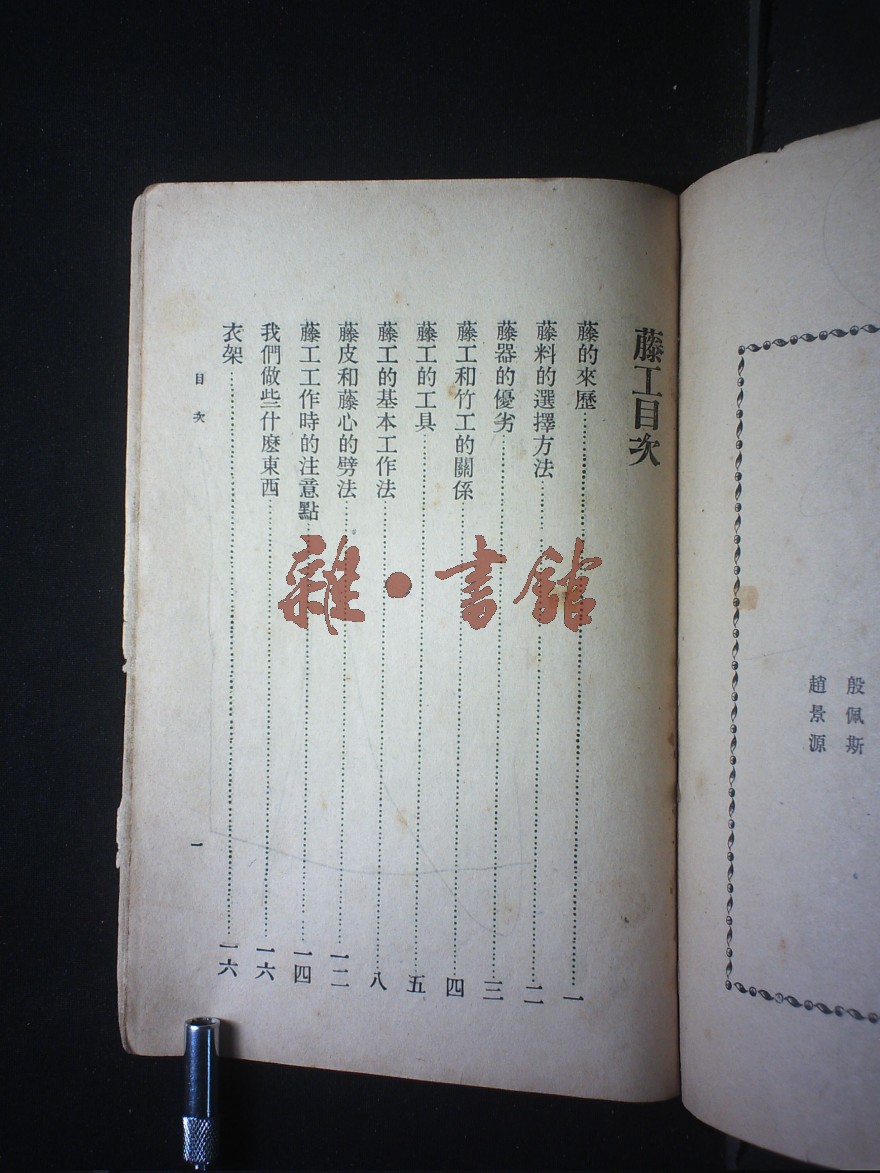 殷佩斯
趙景源
藤工目次
藤的來歷……一
藤料的選擇方法……二
藤器的優劣……三
藤工和竹工的關係……四
藤工的工具……五
藤工的基本工作法……八
藤皮和藤心的劈法……一二
藤工工作時的注意點……一四
我們做些什麼東西……一六
衣架……一六
目次
一
雜·書館